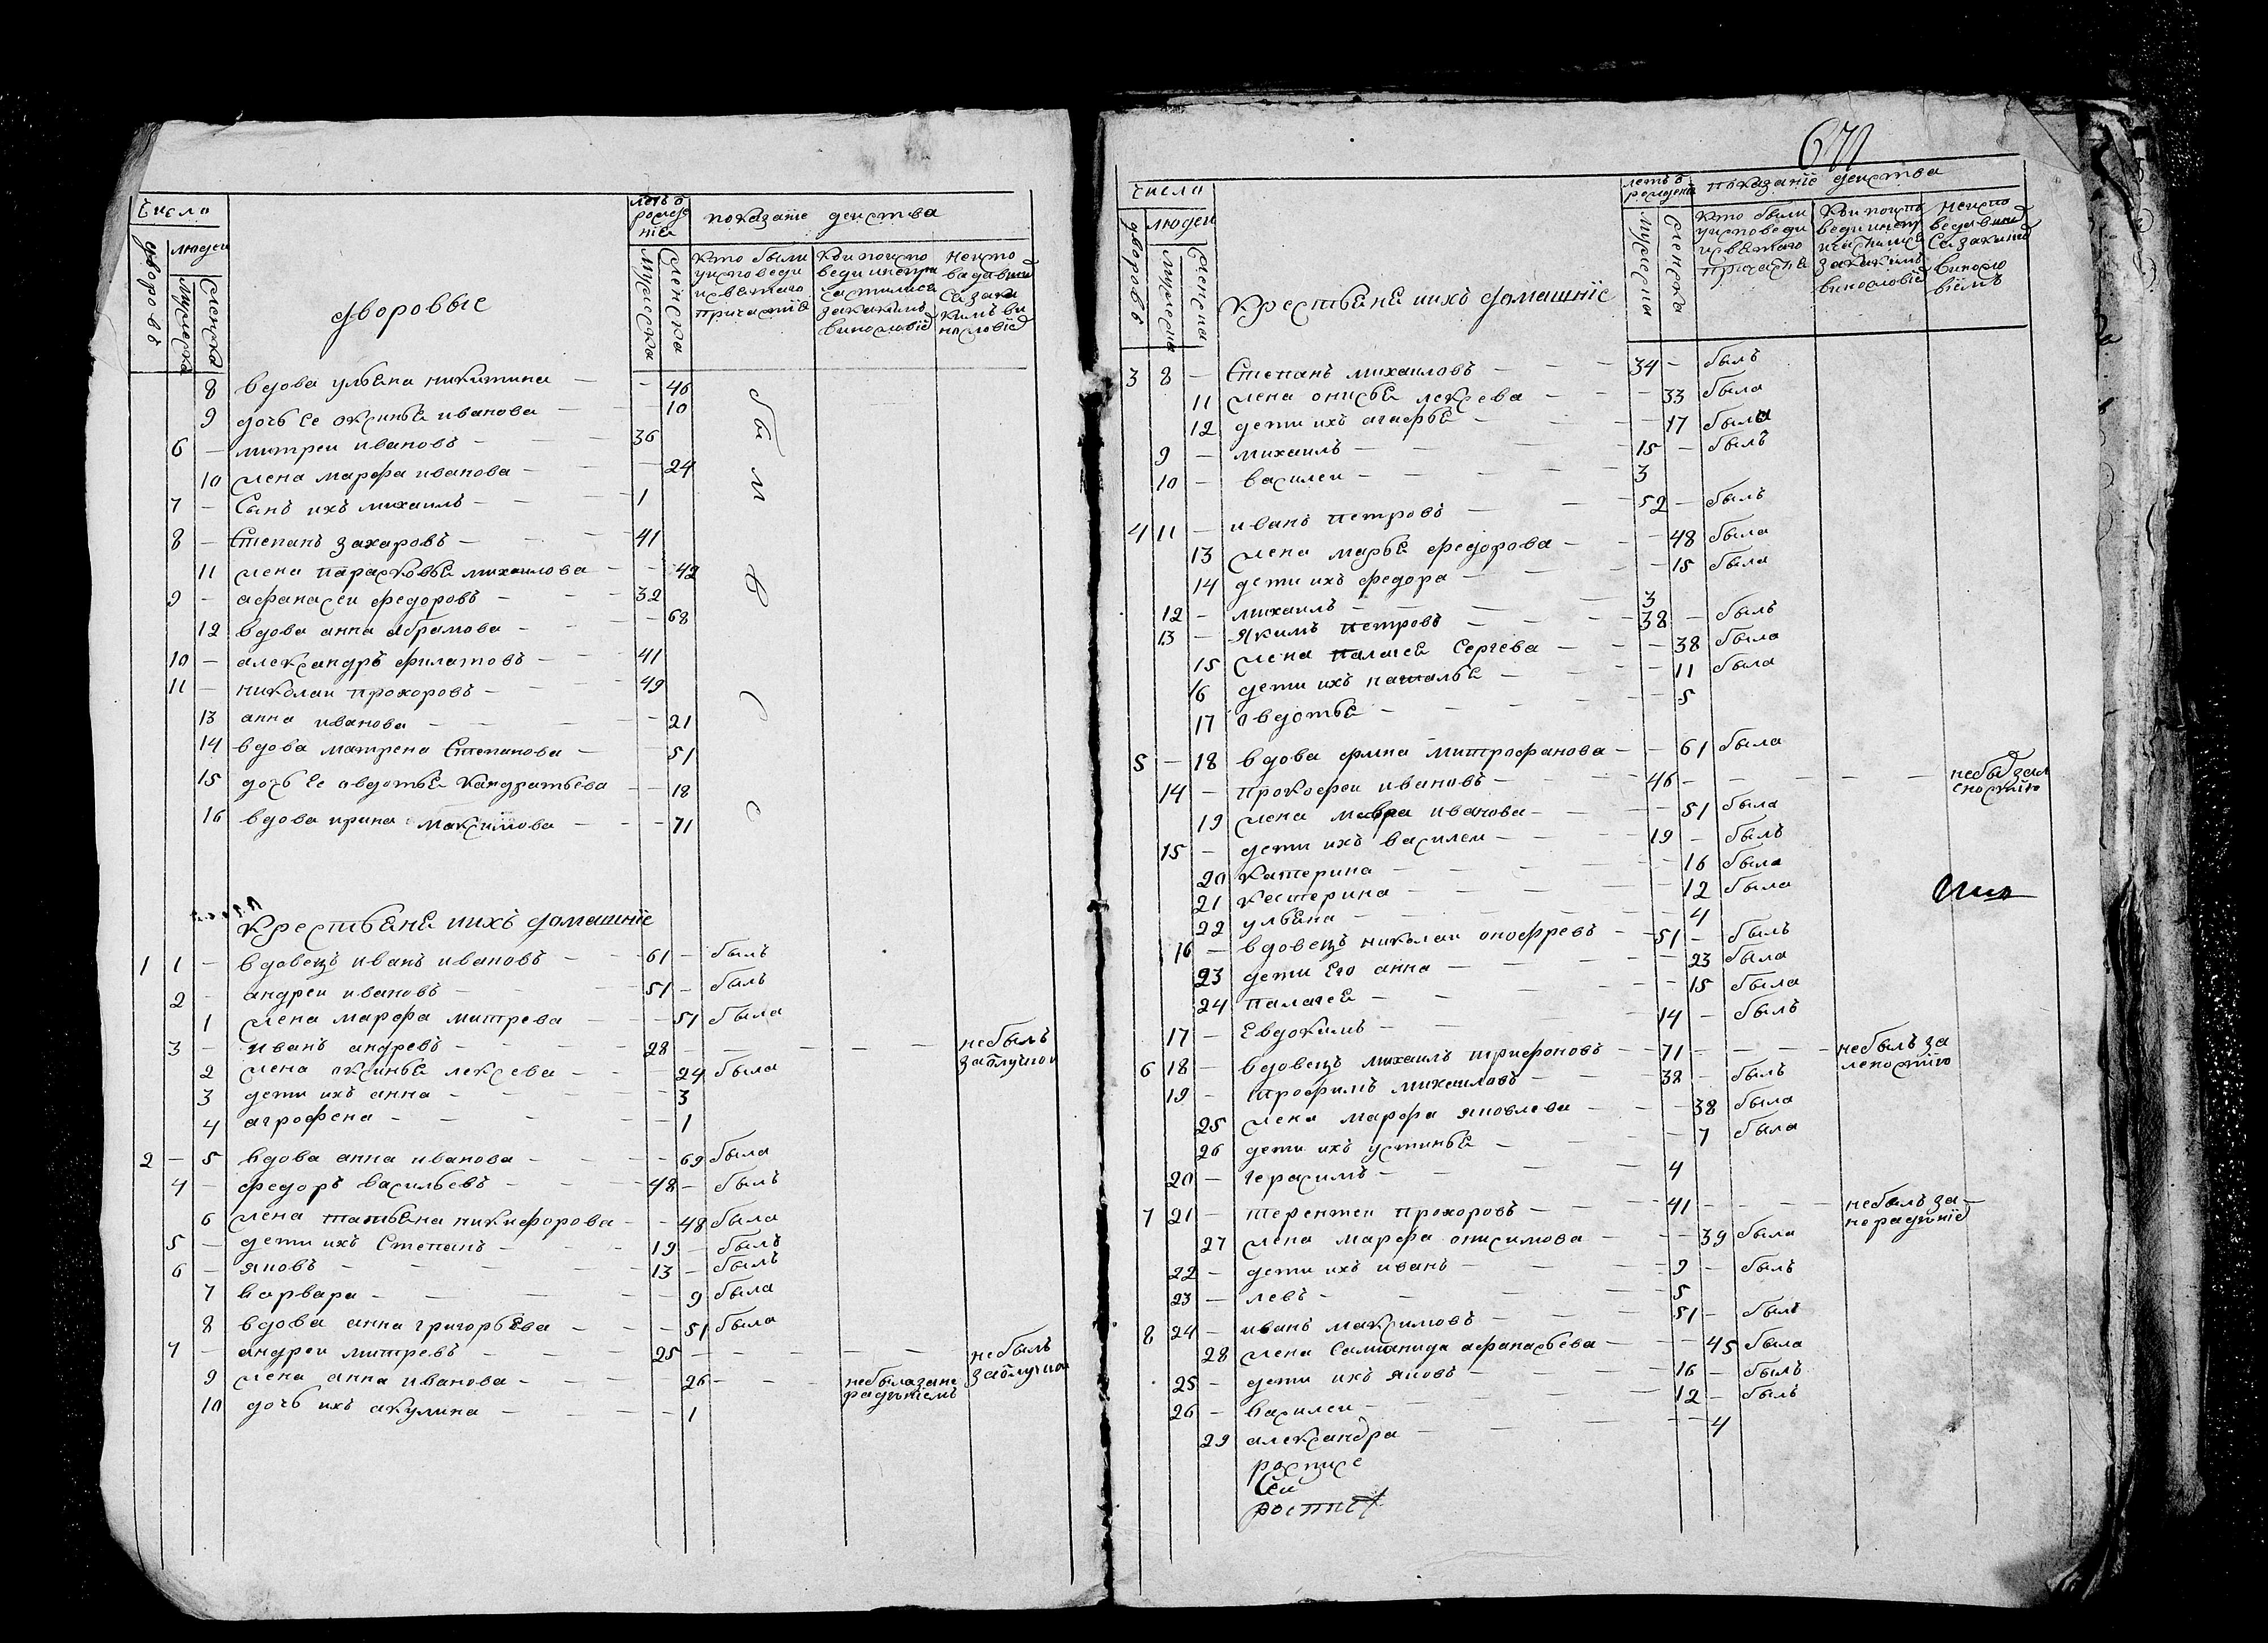 число
дворовъ
людеи
мужеска
женска
дворовые
летъ о рожде нїя
мужеска
женска
показанїе деиства
кто были
у исповеди
и святаго
причастїя
кои по испо
веди и не при
частились
за какимъ
винословїе
не испо
ведавши
ся за ка
кимъ ви
нословїе
8 вдова ульяна никитина — — 46
9 дочь ее оксинья иванова — — 10
6 — митреи ивановъ — — 36
10 жена марфа иванова — — 24
7 — сынъ ихъ михаилъ — — 1
8 — степанъ захаровъ — — 41
11 жена парасковья михаилова — — 42
9 — афанасеи федоровъ — — 32
12 вдова анна абрамова — — 68
10 — александръ филатовъ — 41
11 — николаи прохоровъ — 49
13 анна иванова — — 21
14 вдова матрена степанова — 51
15 дочь ее авдотья кандратьева — — 18
16 вдова ирина максимова — — 71
крестьяня и ихъ домашнїе
1 1 — вдовецъ иванъ ивановъ — 61 — былъ
2 — андреи ивановъ — 51 — былъ
1 жена марфа митрева — 51 была
3 — иванъ андревъ — 28 — — — — не былъ
за отлучкои
2 жена оксинья лексева — 24 была
3 дети ихъ анна — 3
4 агрофена — 1
2 — 5 вдова анна иванова — 69 была
4 — федоръ васильевъ — 48 — былъ
6 жена татьяна никифорова — 48 была
5 — дети ихъ степанъ — 19 — былъ
6 — яковъ — 13 — былъ
7 варвара — 9 была
8 вдова анна григорьева — 51 была
7 — андреи митревъ — 25 — — — не былъ
за отлучкои
9 жена анна иванова — 26 — — не была за не
радѣнїемъ
10 дочь ихъ акулина — 1
671
число
дворовъ
людеи
мужеска
женска
крестьяня и ихъ домашнїе
летъ о рожденїя
мужеска
женска
показанїе деиства
кто были
у исповеди
и святаго
причастїя
кои по испо
веди и не при
частились
за какимъ
винословїе
не испо
ведавши
ся за какимъ
виносло
вїемъ
3 8 — степанъ михаиловъ — 34 — былъ
11 жена онисья лексева — 33 была
12 дети ихъ агафья — 17 была
9 — михаилъ — 15 — былъ
10 — василеи — 3
4 11 — иванъ петровъ — 52 — былъ
13 жена марья федорова — 48 была
14 дети ихъ федора — 15 была
12 — михаилъ — 3
13 — якимъ петровъ — 38 — былъ
15 жена палагея сергева — 38 была
16 дети ихъ наталья — 11 была
17 овдотья — 5
5 — 18 вдова фекла митрофанова — 61 была
14 — прокофеи ивановъ — 46 — — — —
19 жена мавра иванова — 51 была
15 — дети ихъ василеи — 19 — былъ
20 катерина — 16 была
21 кестерина — 12 была
22 ульяна — 4
16 — вдовецъ николаи онофревъ — 51 — былъ
23 дети его анна — 23 была
24 палагея — 15 была
17 — евдокимъ — 14 — былъ
6 18 — вдовецъ михаилъ трифоновъ — 71 — — — не былъ за
леностїю
19 — трофимъ михаиловъ — 38 — былъ
25 жена марфа яковлева — 38 была
26 дети ихъ устинья — 7 была
20 — герасимъ — 4
7 21 — терентеи прохоровъ — 41 — — — не былъ за
нерадѣнїе
27 жена марфа онисимова — 39 была
22 — дети ихъ иванъ — 9 — былъ
23 — левъ — 5
8 24 — иванъ максимовъ — 51 — былъ
28 жена саломанида афанасьева — 45 была
25 — дети ихъ яковъ — 16 — былъ
26 — василеи — 12 — былъ
29 александра — 4
росписе
сеи
роспис